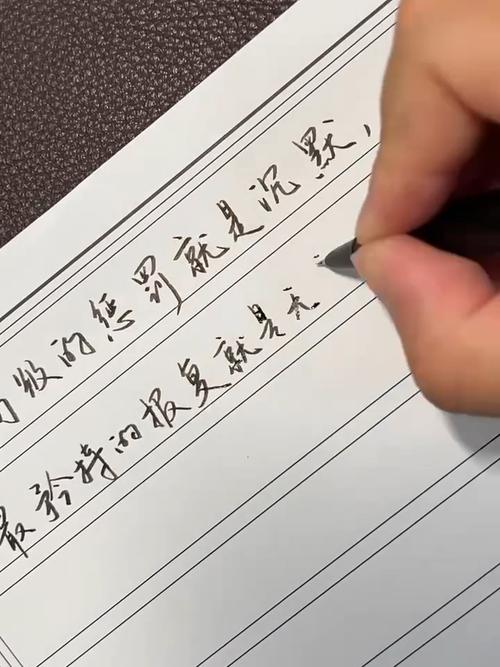 级的惩罚就是沉默，
最矜持的报复就是无